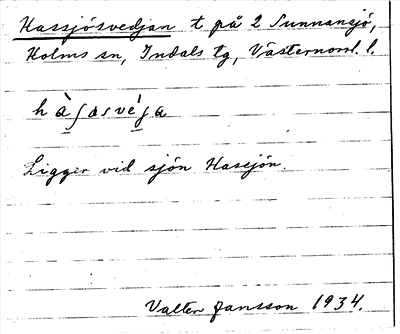 Hassjösvedjan t på 2 Sunnansjö,
Holms sn, Indals tg, Västernorrl. l.
hàʃasvéʃa
Ligger vid sjön Hassjön.
Valter Jansson 1934.